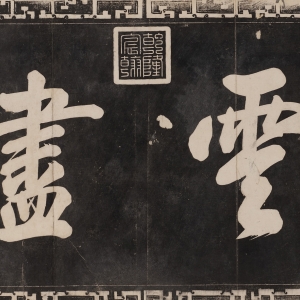 雲盡
乾隆宸翰